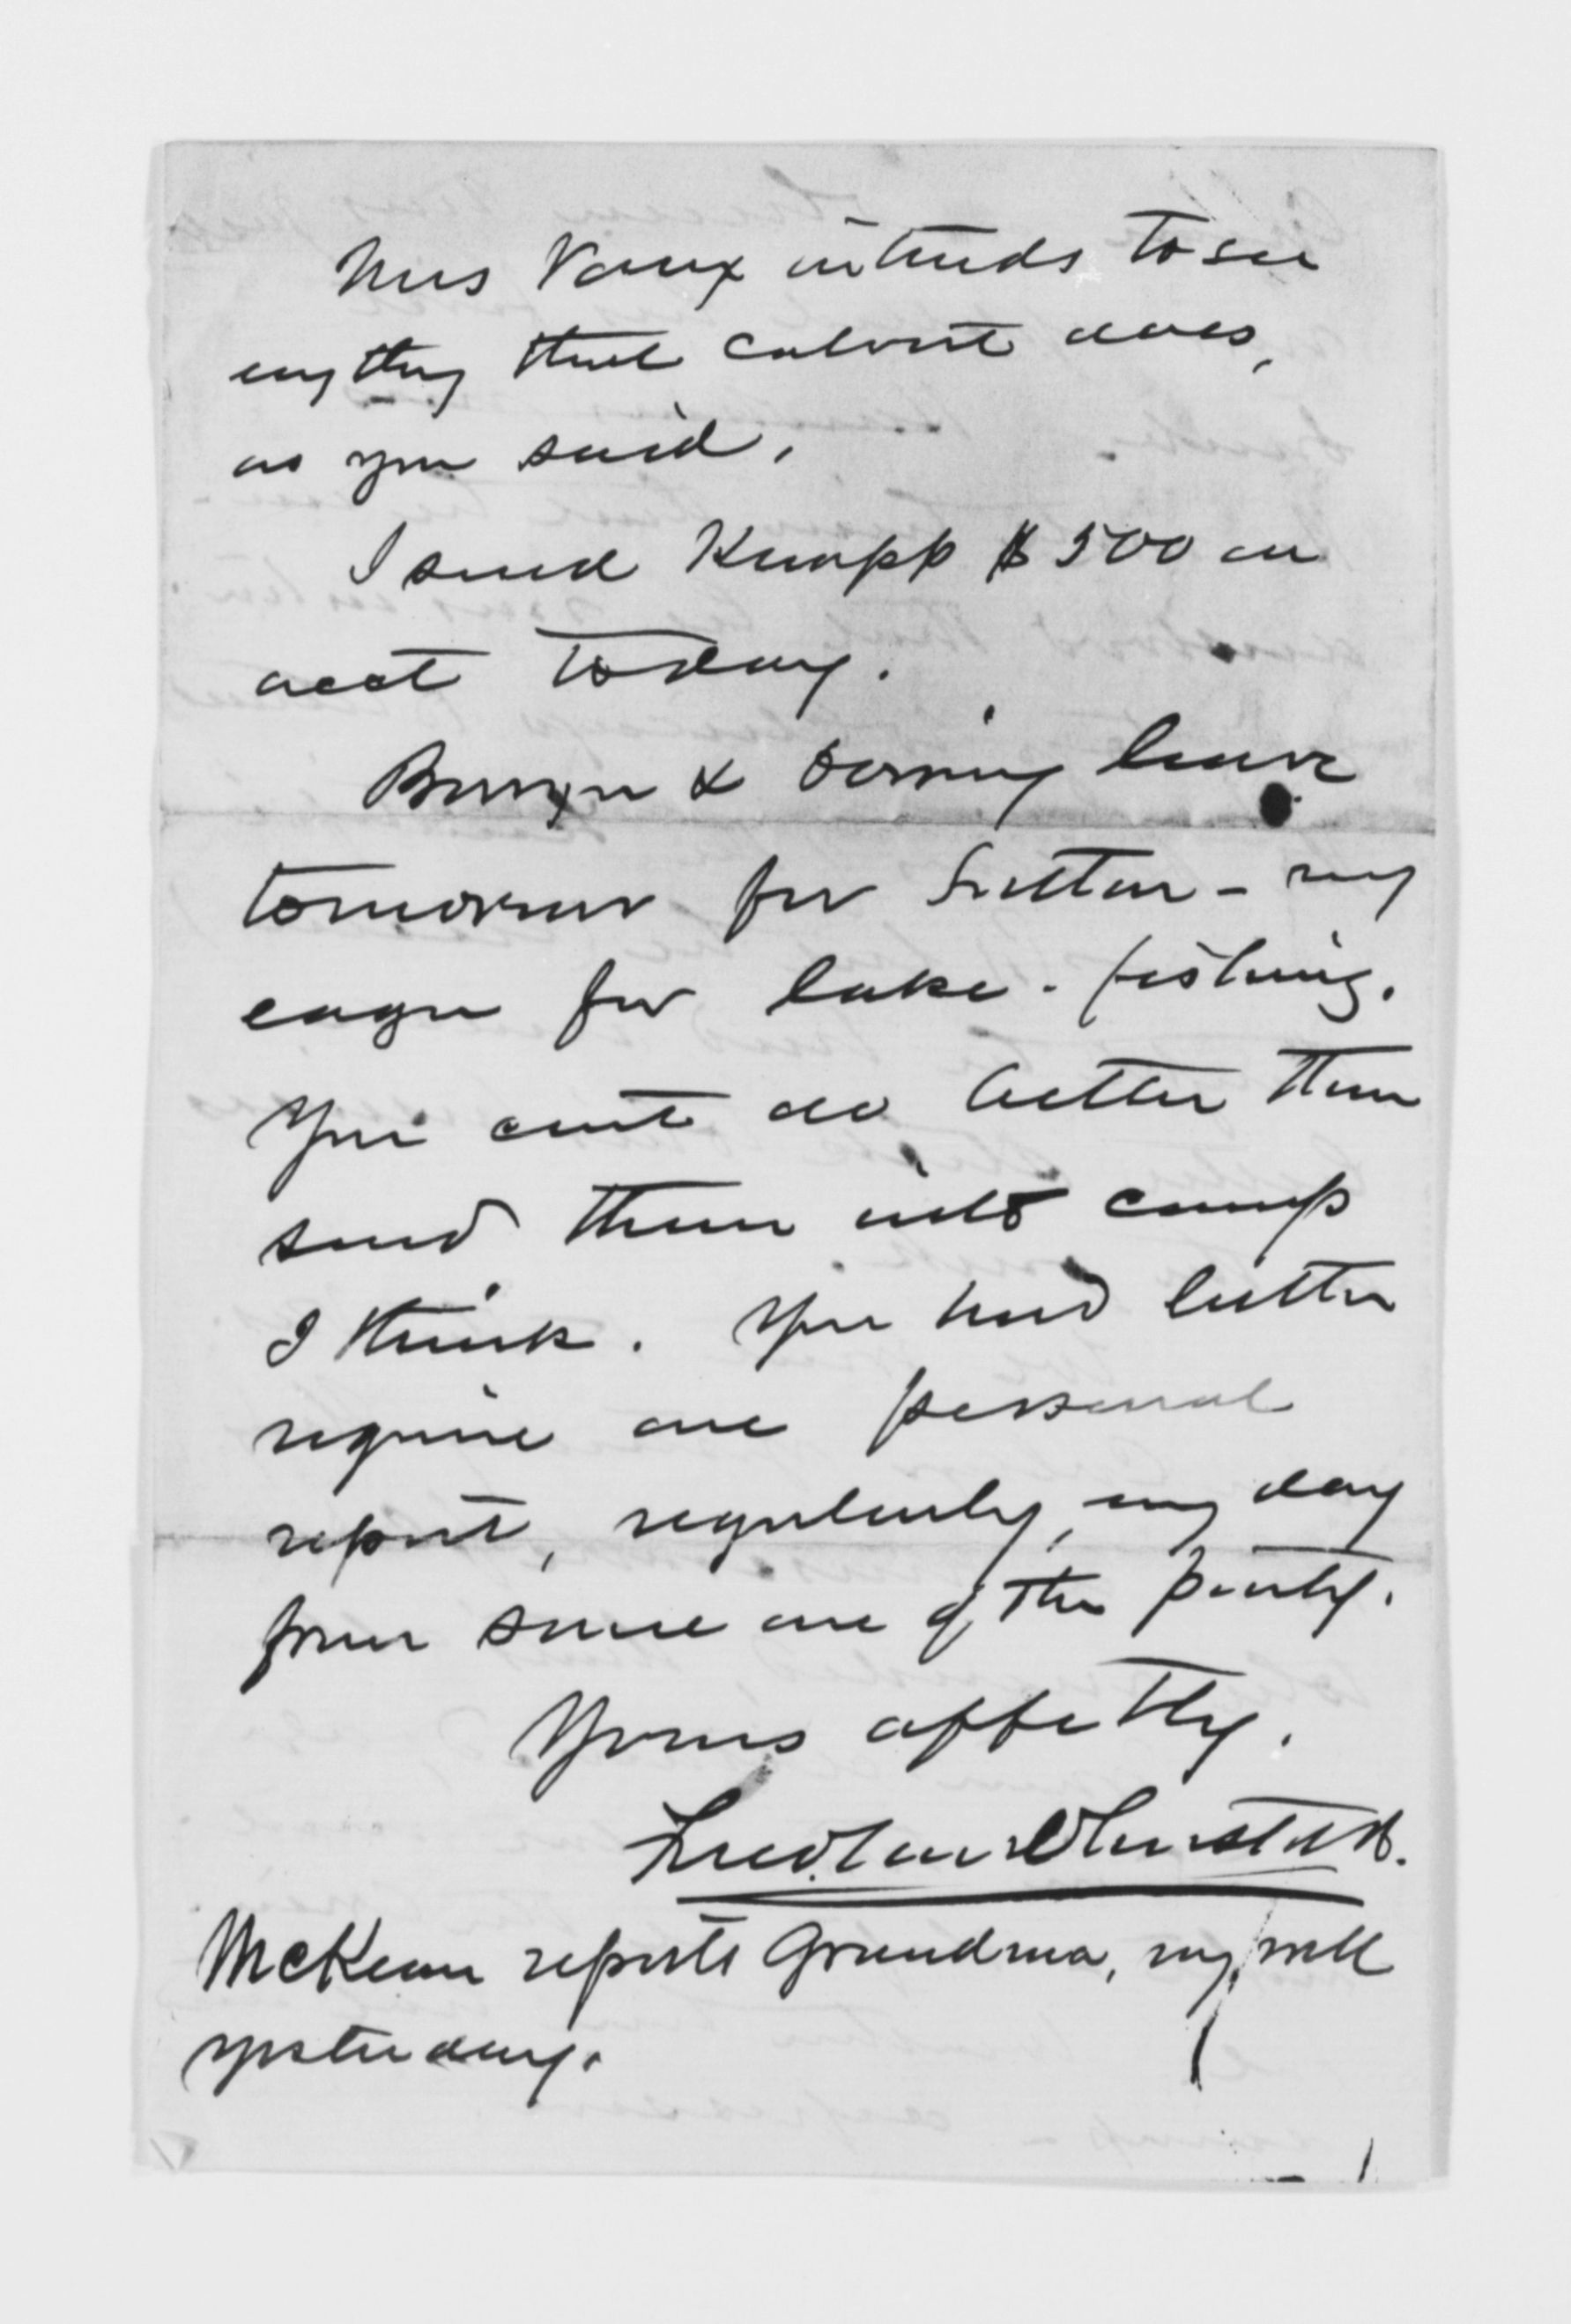 Mrs Vaux intends to see
everything that Calvert does,
as you said.
I send Knapp $500 on
acct today.
& leave
tomorrow for Sutton - very
eager for lake-fishing.
You cant do better than
send them into camp
I think. You had better
require one personal
report, regularly, every day
from some one of the party.
Yours affctly.
Fred. Law Olmsted.
McKean reports Grandma, very well
yesterday.